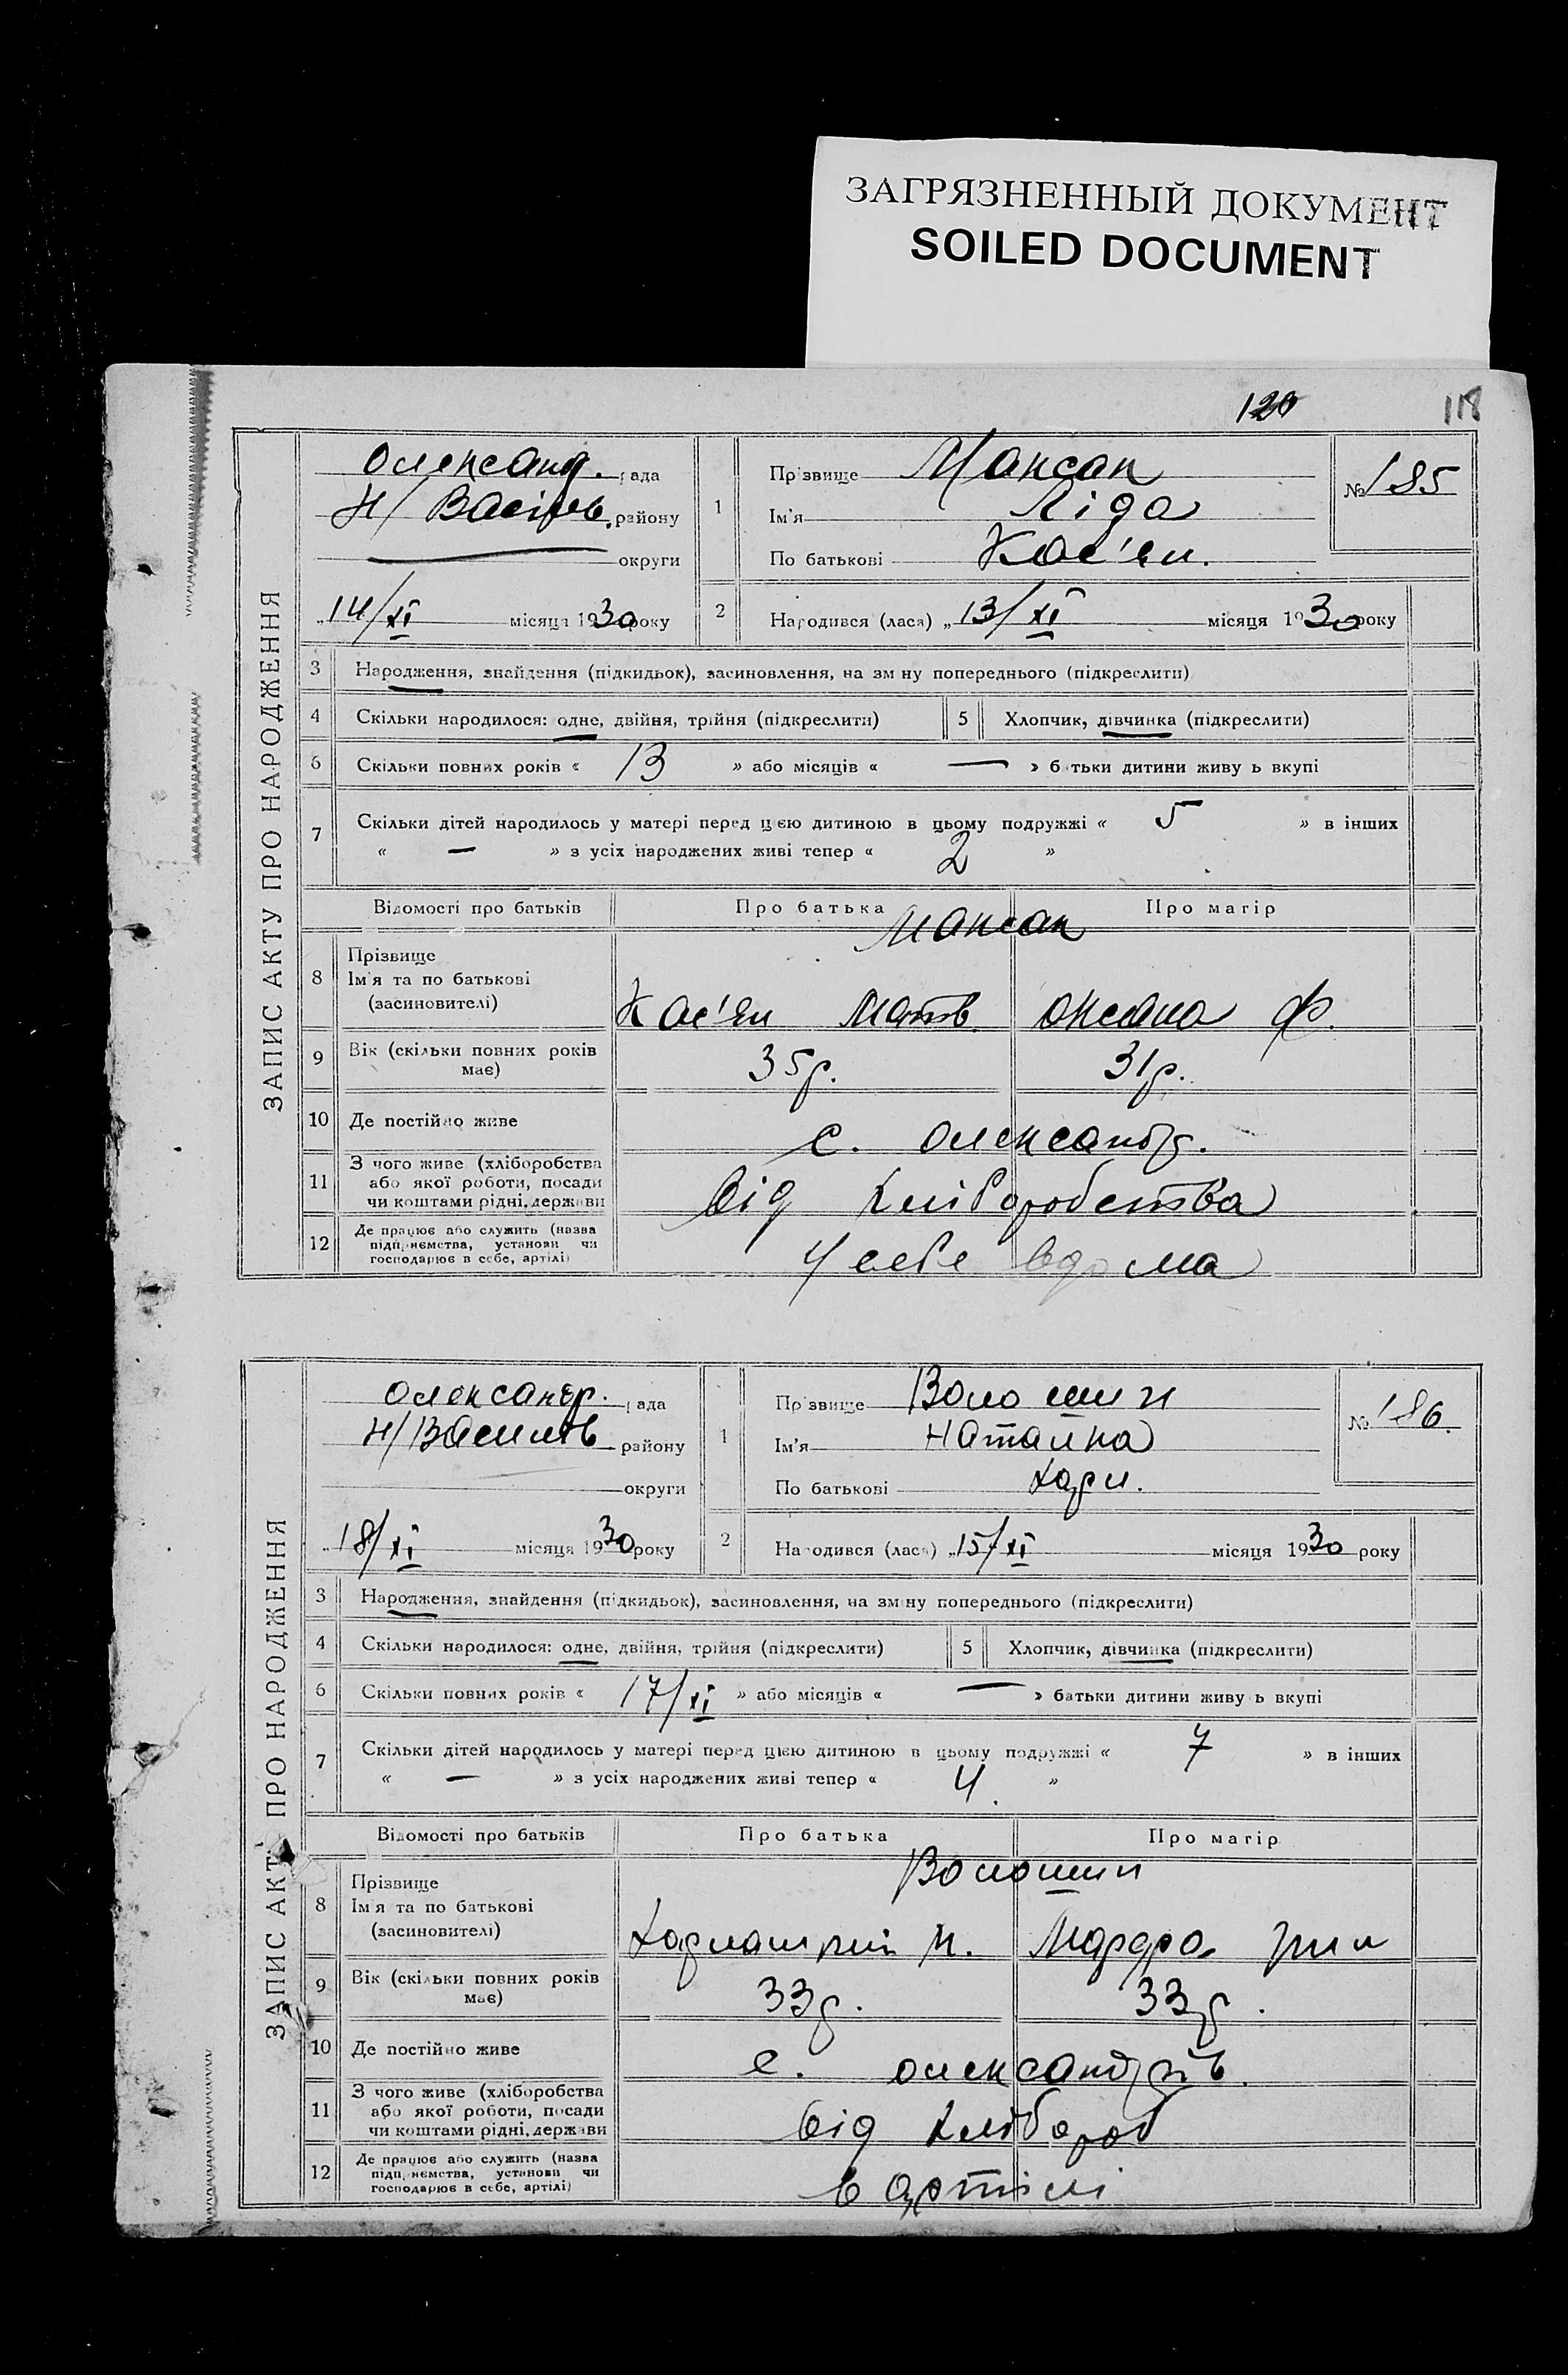 ЗАГРЯЗНЕННЫЙ ДОКУМЕНТ
SOILED DOCUMENT
120 118
ЗАПИС АКТУ ПРО НАРОДЖЕННЯ
Олександ. рада
Н/Васильв. району
округи
„14/XI місяця 1930 року
1
Прізвище Мансак
Ім'я Ліда
По батькові Кас'ян.
№ 185
2 Народився (лася) „13/XI місяця 1930 року
3 Народження, знайдення (підкидьок), засиновлення, на зміну попереднього (підкреслити)
4 Скільки народилося: одне, двійня, трійня (підкреслити) 5 Хлопчик, дівчинка (підкреслити)
6 Скільки повних років « 13 » або місяців « — » батьки дитини живуть вкупі
7 Скільки дітей народилось у матері перед цією дитиною в цьому подружжі « 5 » в інших
« — » з усіх народжених живі тепер « 2 »
Відомості про батьків Про батька Про матір
Мансак
8 Прізвище
Ім'я та по батькові
(засиновителі)
Кас'ян Матв. Оксана Ф.
9 Вік (скільки повних років
має)
35р. 31р.
10 Де постійно живе с. Олександр.
11 З чого живе (хліборобства
або якої роботи, посади
чи коштами рідні, держави
від хліборобства
12 Де працює або служить (назва
підприємства, установи чи
господарює в себе, артілі)
У себе вдома
ЗАПИС АКТ ПРО НАРОДЖЕННЯ
Олександр. рада
Н/Васильв району
округи
„18/XI місяця 1930 року
1
Прізвище Волошин
Ім'я Наталка
По батькові Харл.
№ 186.
2 Народився (лася) „15/XI місяця 1930 року
3 Народження, знайдення (підкидьок), засиновлення, на зміну попереднього (підкреслити)
4 Скільки народилося: одне, двійня, трійня (підкреслити) 5 Хлопчик, дівчинка (підкреслити)
6 Скільки повних років « 17/XI » або місяців « — » батьки дитини живуть вкупі
7 Скільки дітей народилось у матері перед цією дитиною в цьому подружжі « 7 » в інших
« — » з усіх народжених живі тепер « 4. »
Відомості про батьків Про батька Про матір
Волошин
8 Прізвище
Ім'я та по батькові
(засиновителі)
Марфа
9 Вік (скільки повних років
має)
33р. 33р.
10 Де постійно живе с. Олександрів.
11 З чого живе (хліборобства
або якої роботи, посади
чи коштами рідні, держави
від хлібороб
12 Де працює або служить (назва
підприємства, установи чи
господарює в себе, артілі)
в артілі